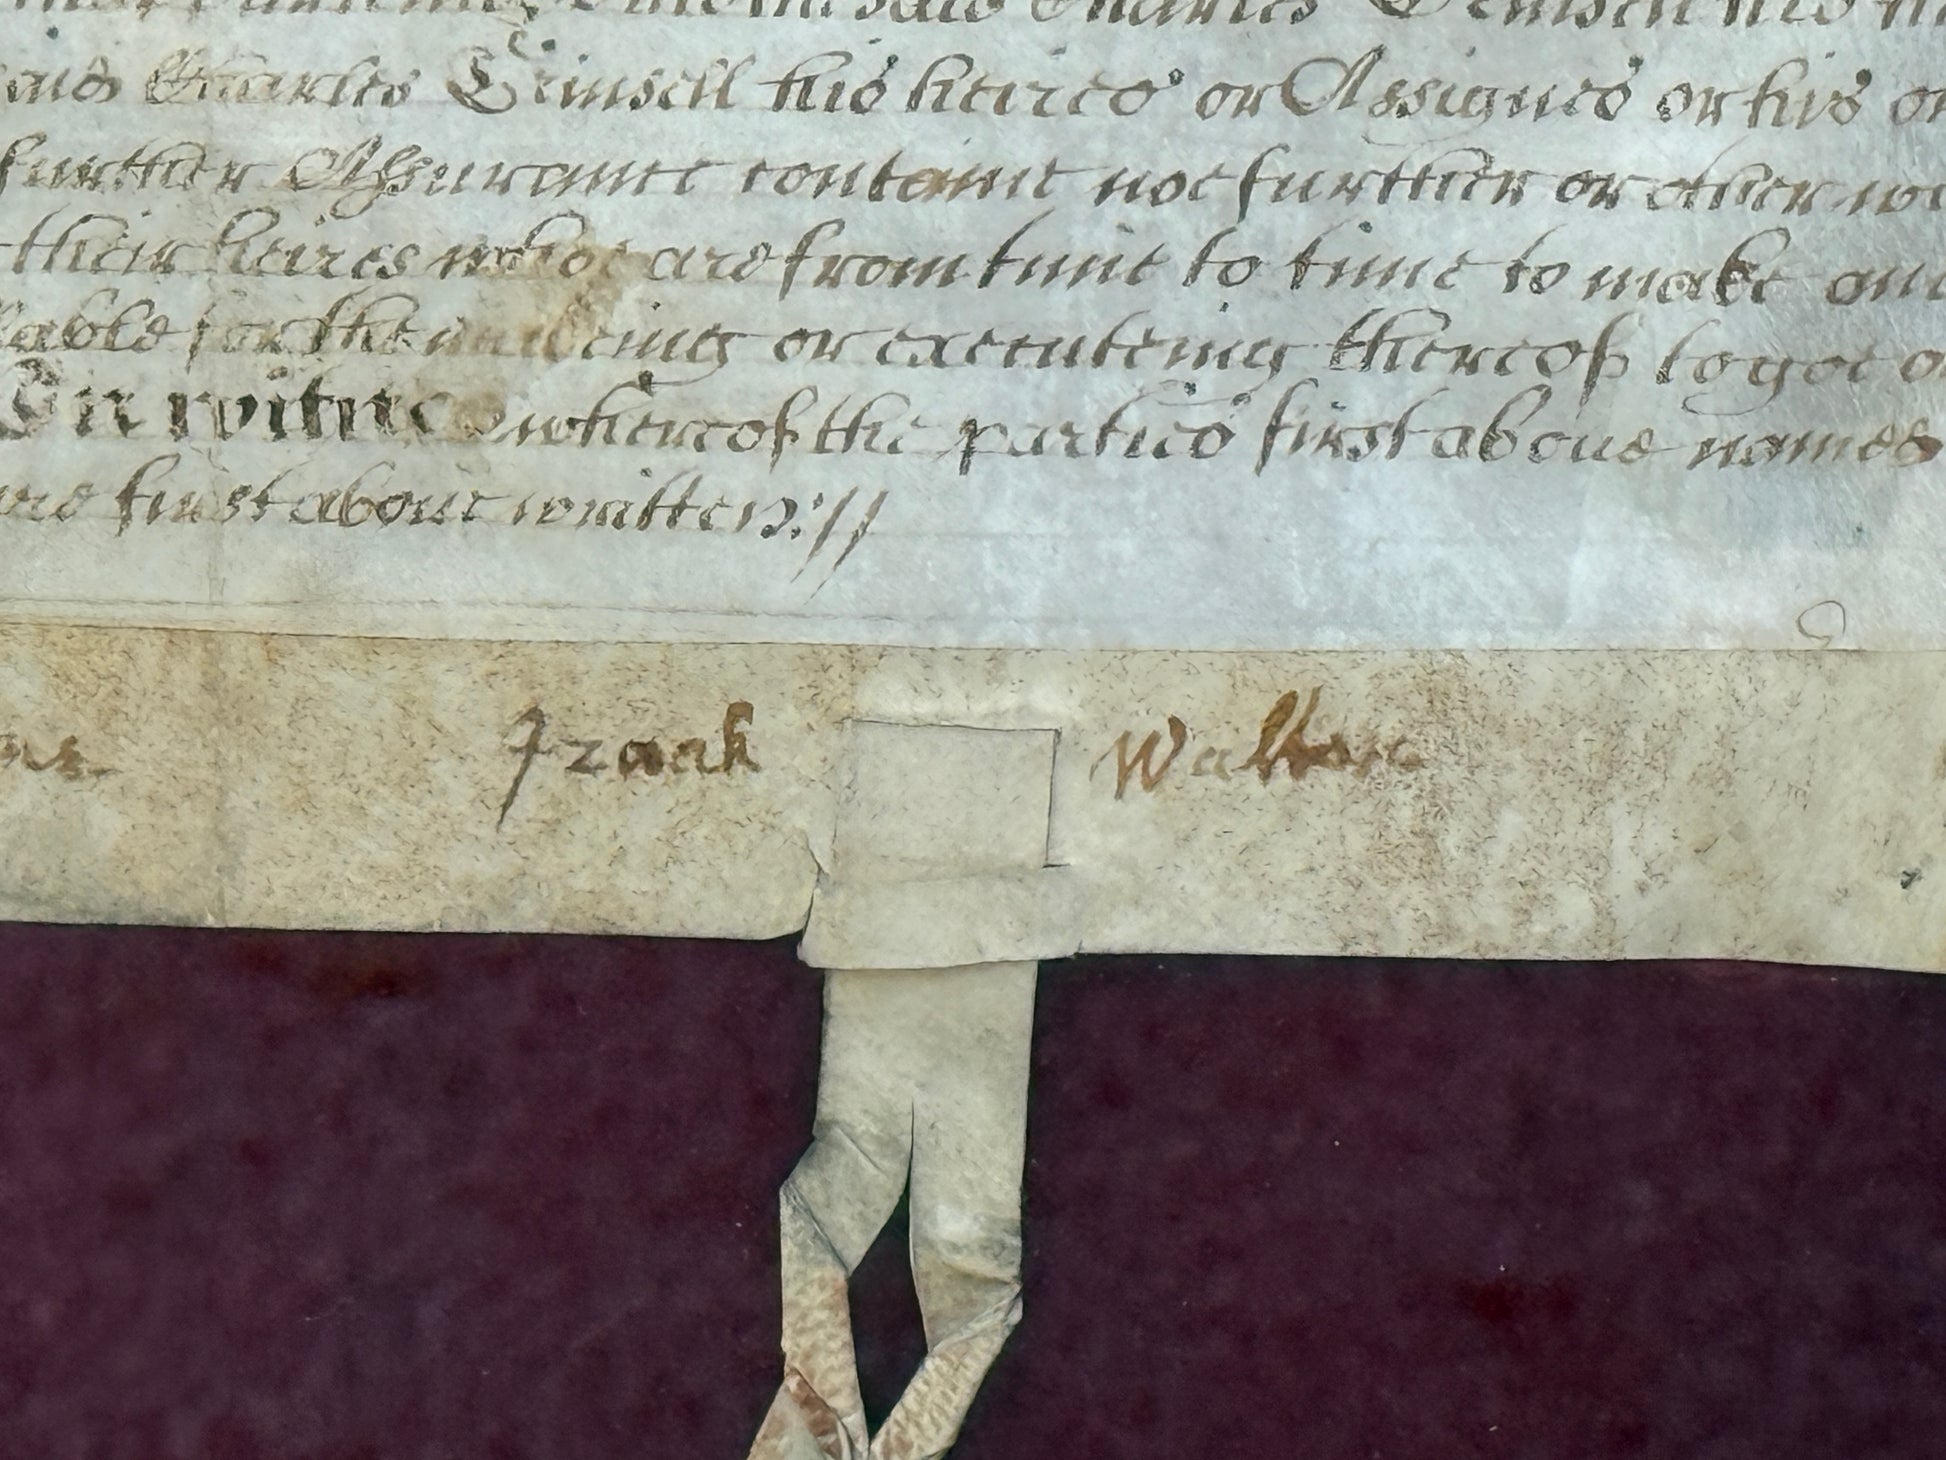 said Charles his
said Charles Trimnell his heires or Assignes or his or
further Assurance containe not further or other
their heires who are from time to time to make and
for the makeing or executeing thereof to goe or
In witnes whereof the parties first aboue named
first aboue written://
Izaak Walton